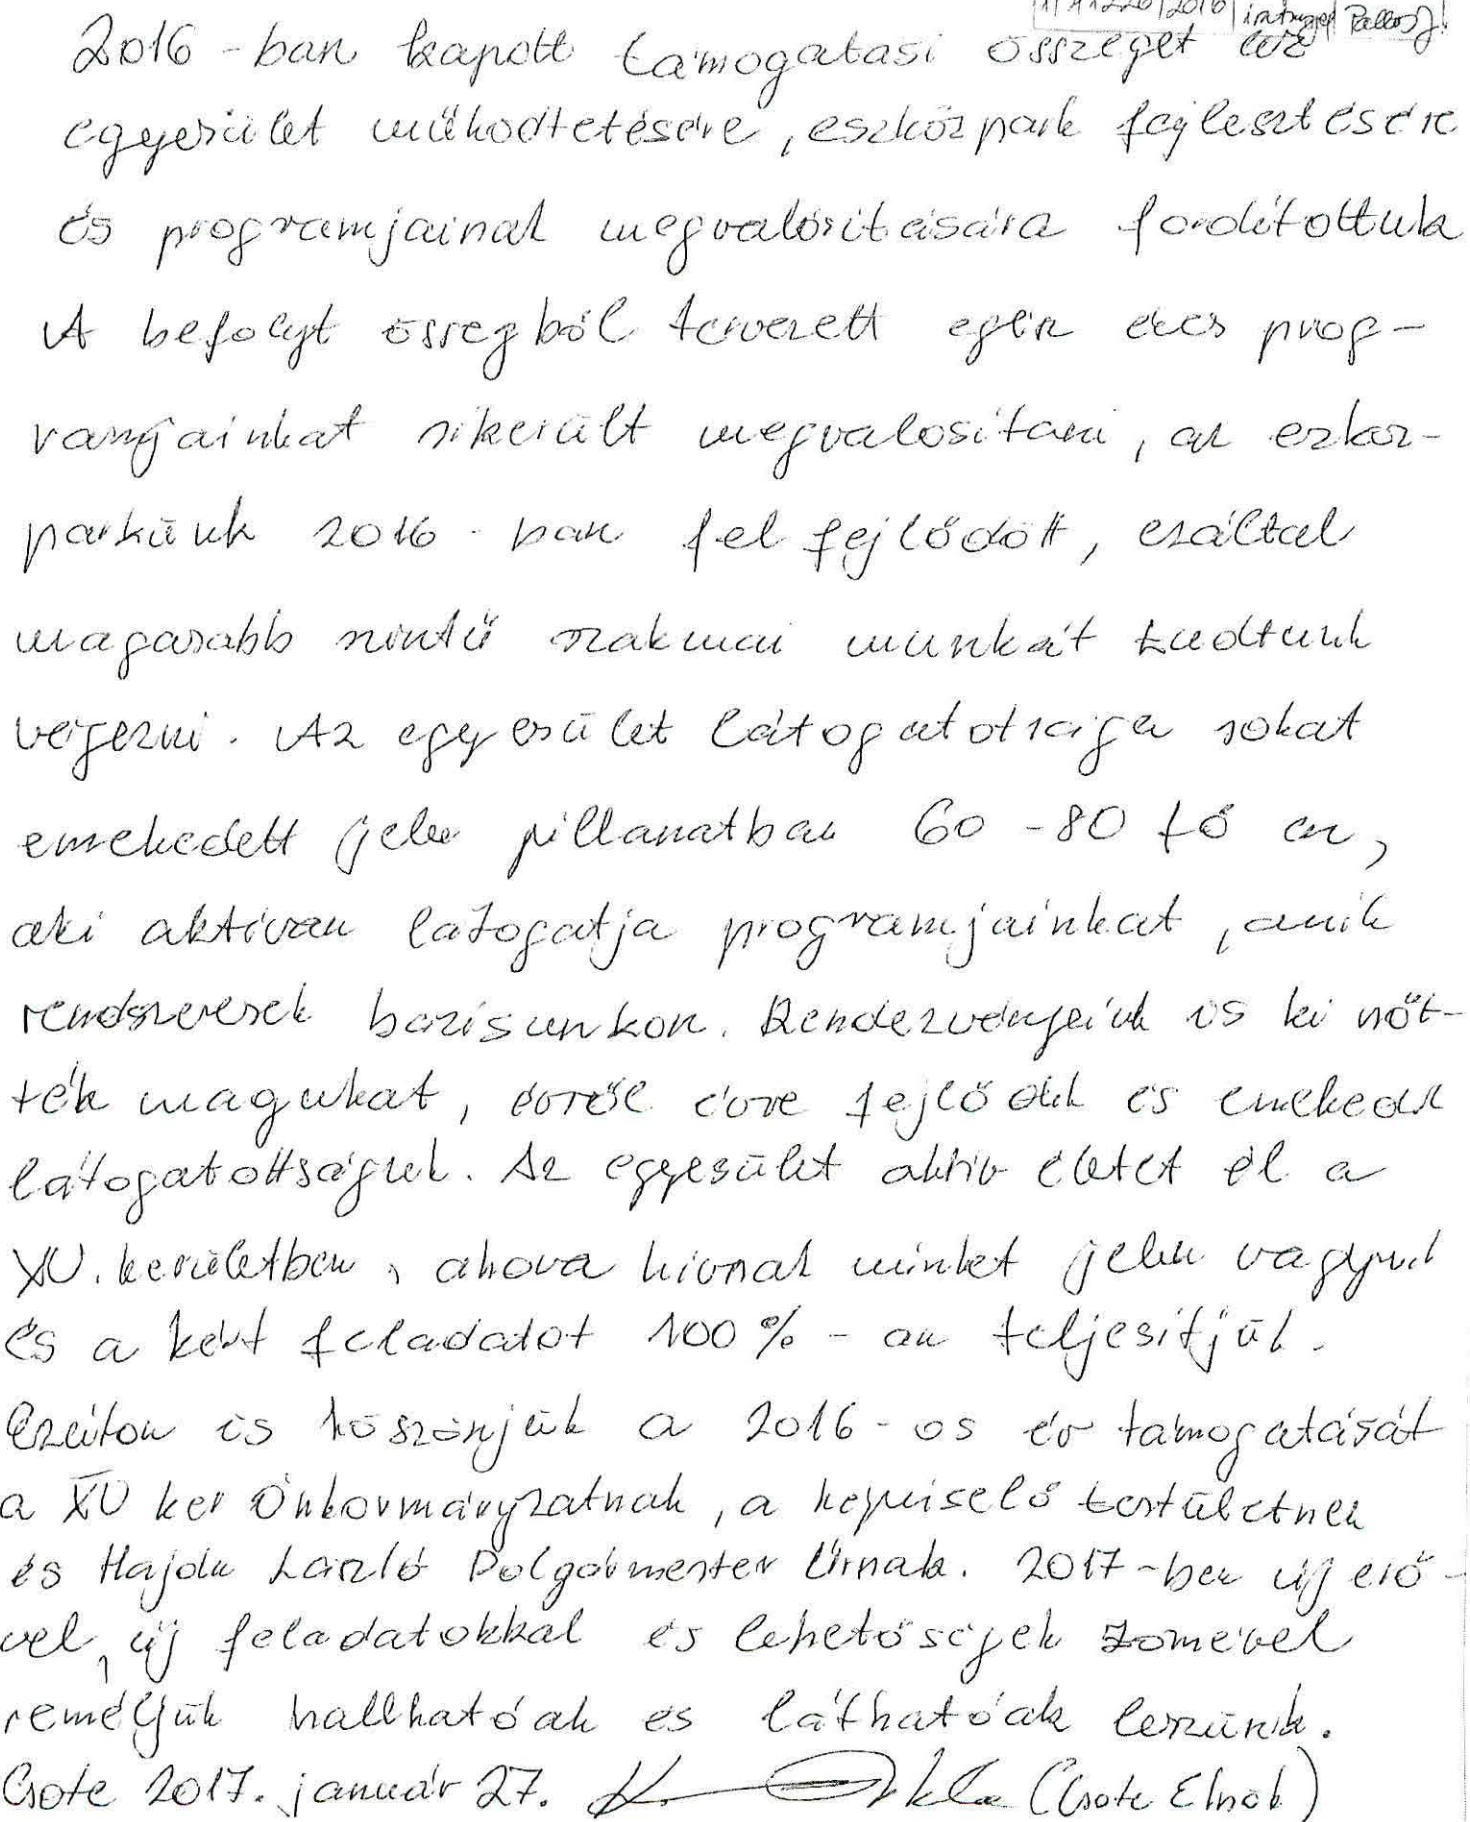 11/11226/2016
2016-ban kapott támogatási összeget az
egyesület működtetésére, eszközpark fejlesztésére
és programjainak megvalósítására fordítottuk
A befolyt össregből tervezett egész éves prog-
ramjainkat sikerült megvalosítani, az eszköz-
parkünk 2016-ban fel fejlődött, ezáltal
magasabb szintű szakmai munkát tudtunk
végezni. Az egyesület látogatotsága sokat
emekedett jelen pillanatban 60-80 fő az,
aki aktívan látogatja programjainkat, akik
rendszeresek bázisunkon. Rendezvényeink is ki nőt-
ték magukat, évről évre fejlődik és emekedik
látogatottságuk. Az egyesület aktív életet él a
XV. kerületben, ahova hívnak minket jelen vagyunk
és a kért feladatot 100%-an teljesítjük.
Ezúton is köszönjük a 2016-os év támogatását
a XV ker Önkormányzatnak, a képviselő testületnek
és Hajdu László Polgármester Úrnak. 2017-ben új erő-
vel, új feladatokkal és lehetőségek tömével
reméljük hallhatóak és láthatóak leszünk.
Csote 2017. január 27. (Csote Elnök)